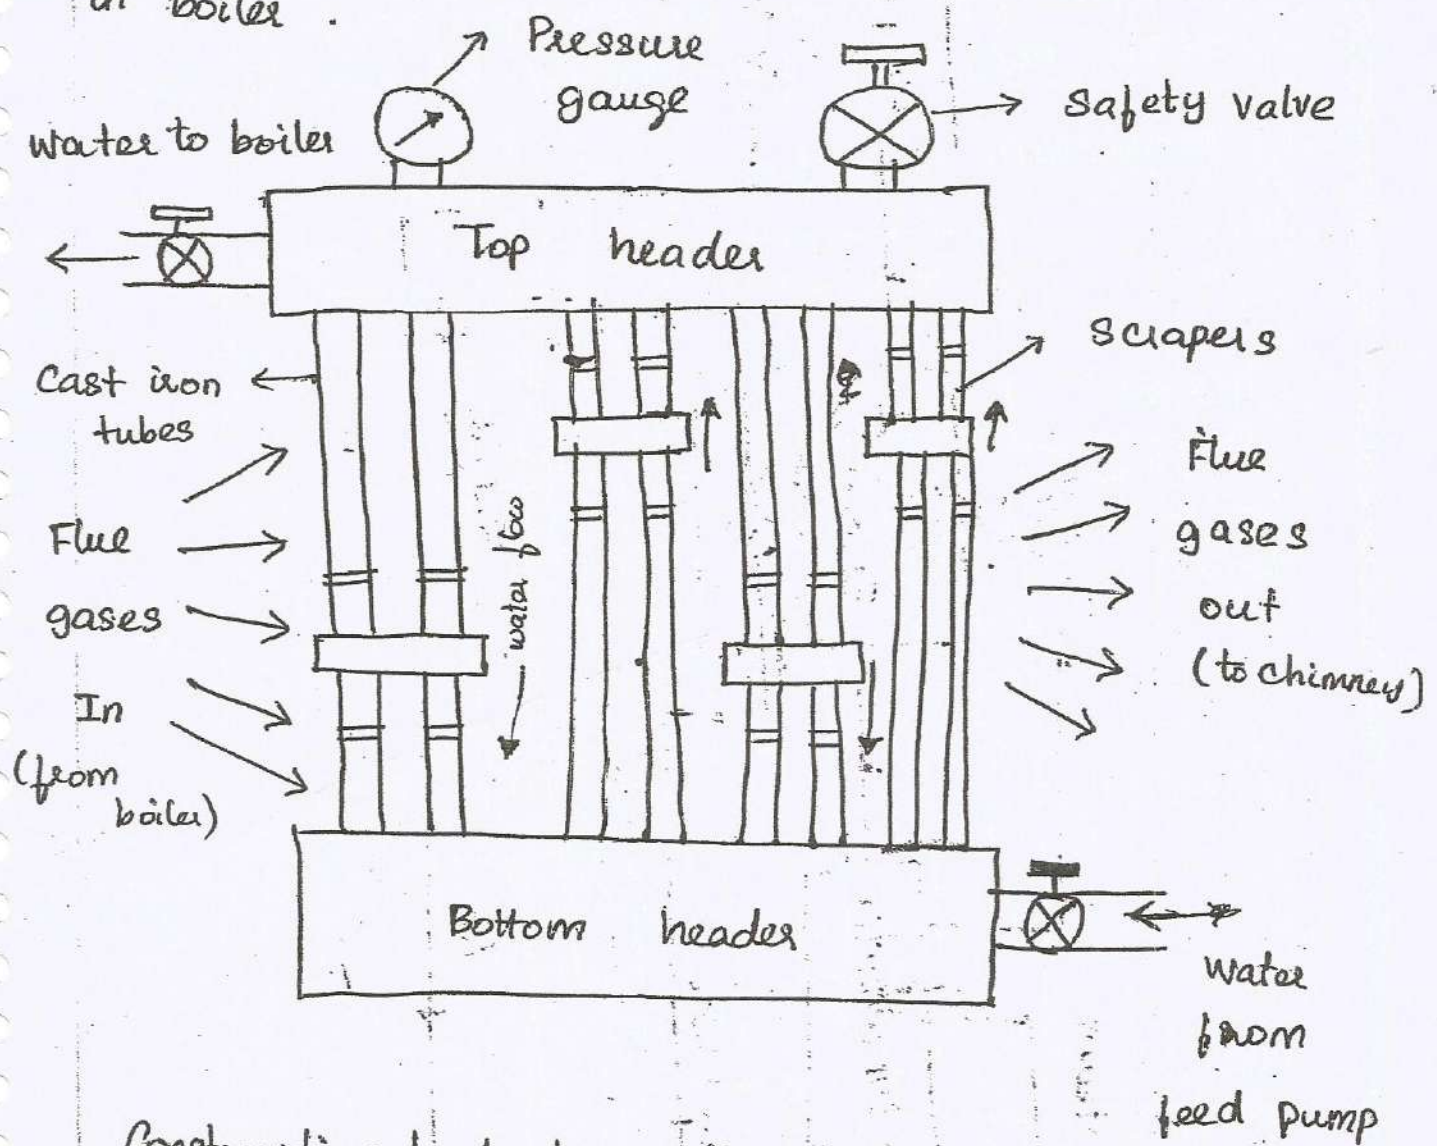 in boiler.
Pressure
gauge
Safety valve
water to boiler
Top header
Scrapers
Cast iron
tubes
Flue
gases
In
(from
boiler)
water flow
Flue
gases
out
(to chimney)
Bottom header
Water
from
feed pump